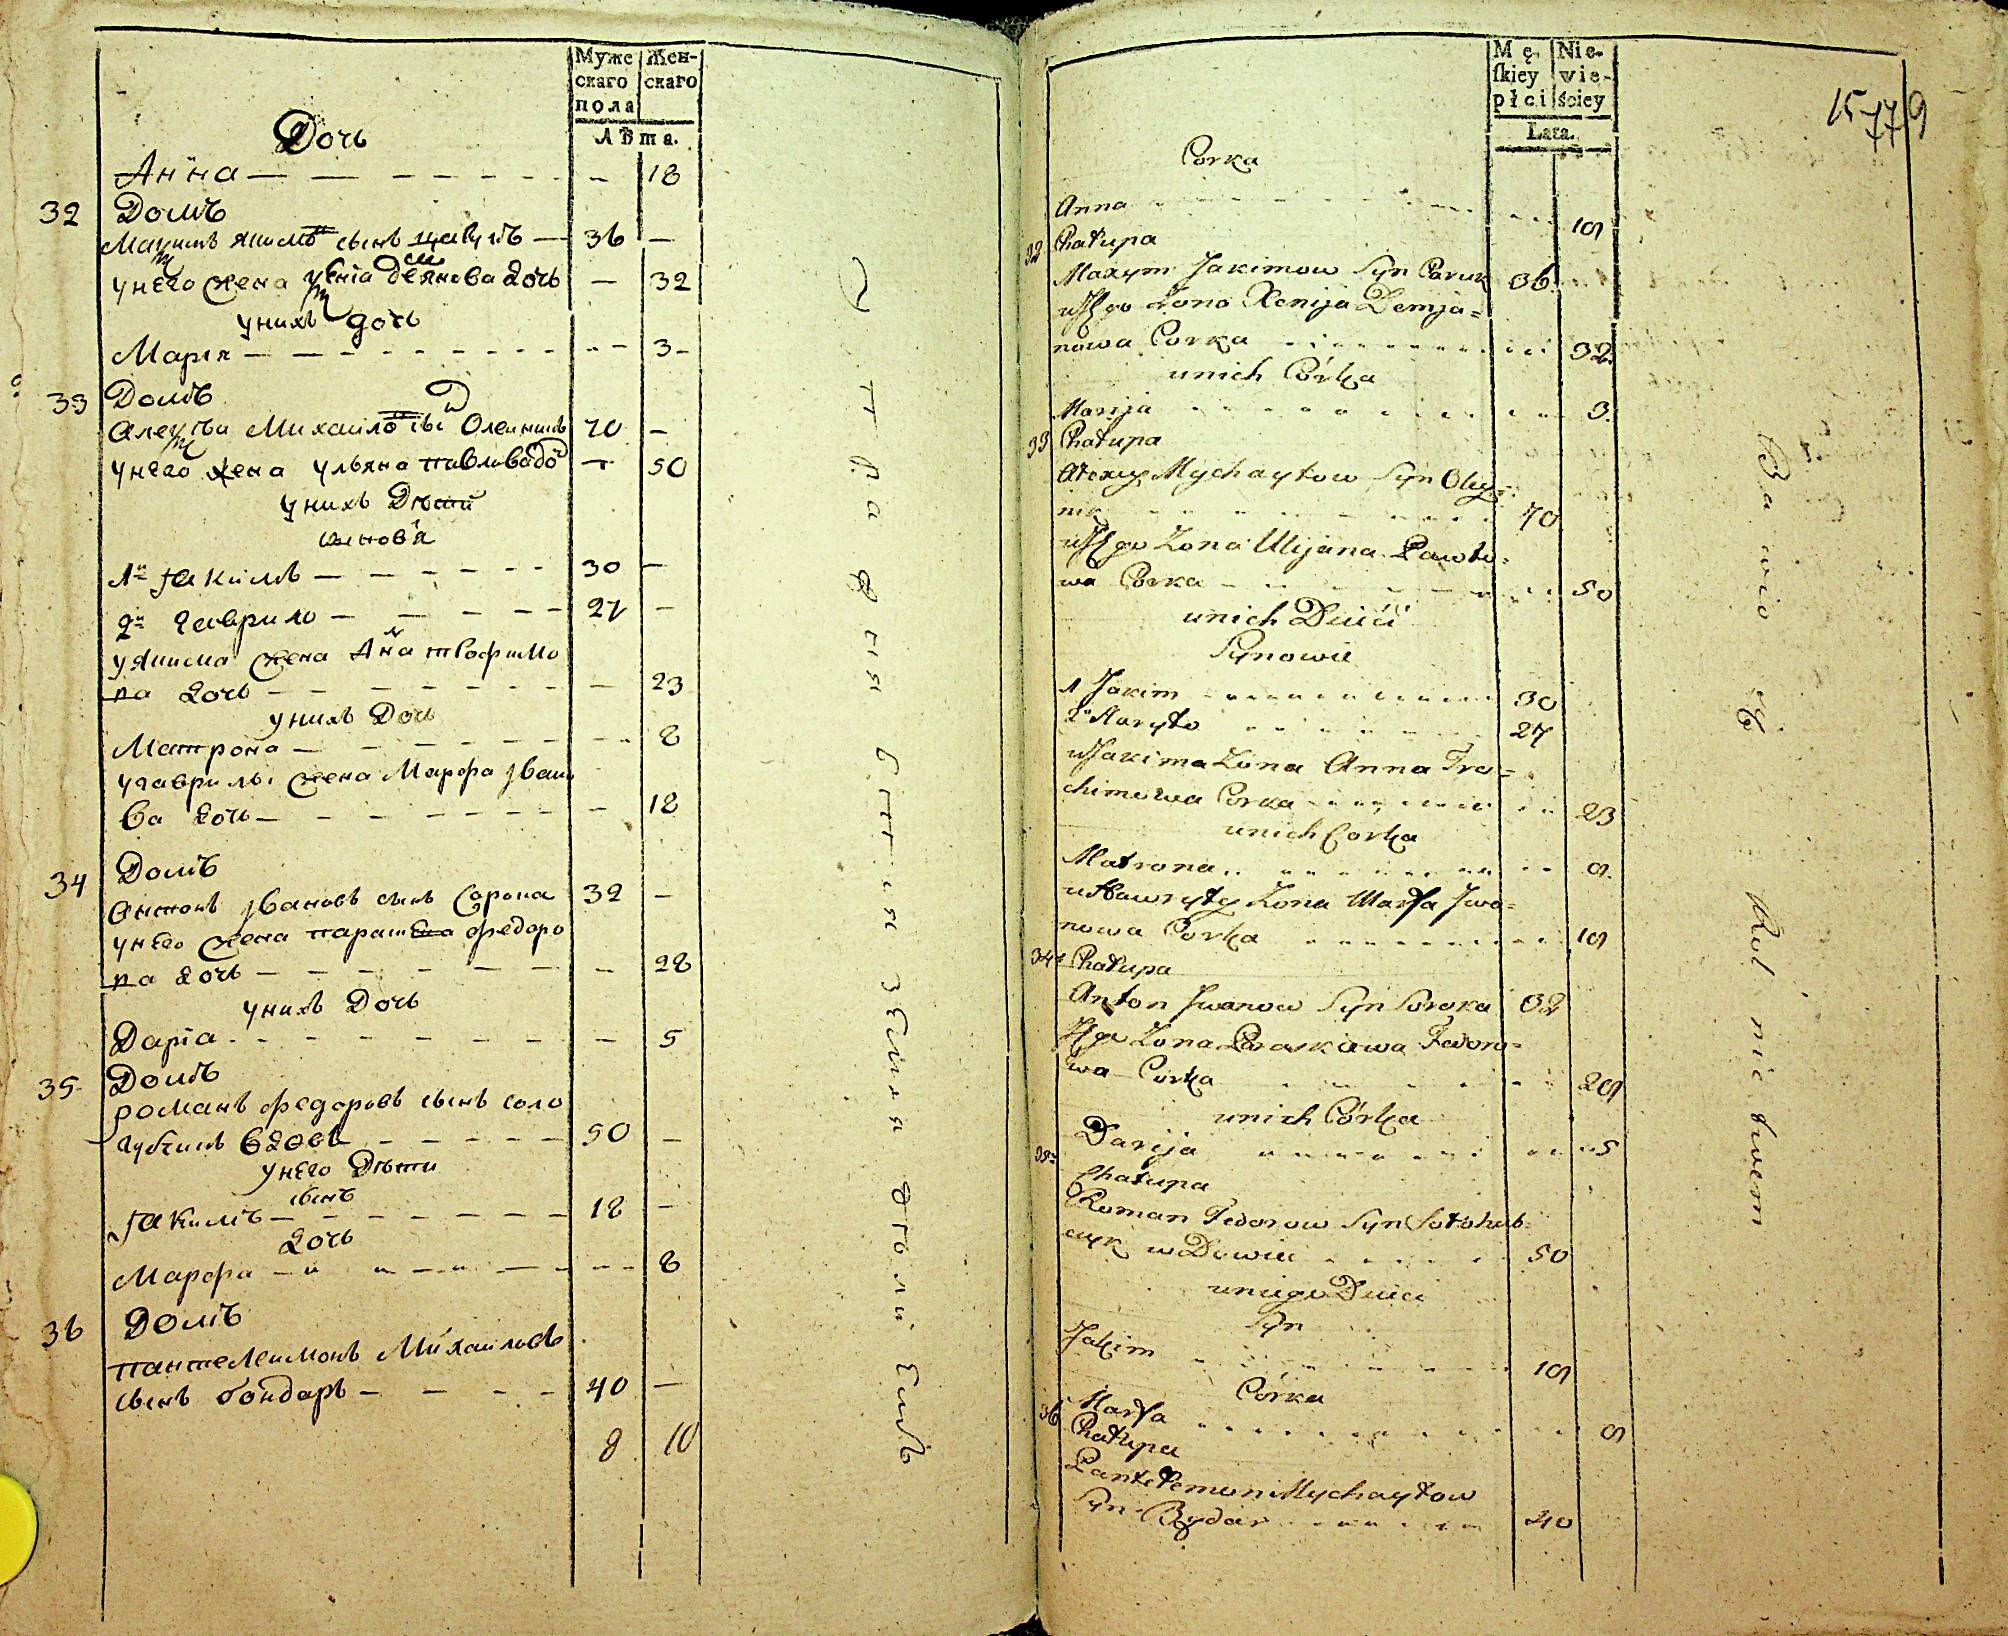 Муже
скаго
пола
Жен-
скаго
Лѣта.
Дочь
Анна — 18
32 Домъ
Маѯимъ Якимовъ сынъ — 36 —
у него жена Ѯенїа Демянова дочь — 32
у нихъ дочь
Марїя — 3
33 Домъ
Алеѯѣй Михайловъ сынъ Олейникъ 70 —
у него жена Ульяна Павлова дочь — 50
у нихъ Дѣти
сыновя
1й Іакимъ — 30 —
2й Гаврило — 27 —
у Якима жена Анна Трофимо
ва дочь — 23
у нихъ Дочь
Матрона — 8
у Гаврилы жена Марфа Івано
ва дочь — 18
34 Домъ
Антонъ Івановъ сынъ Сорока 32 —
у него жена Параскева Федоро
ва дочь — 28
у нихъ Дочь
Дарїа — 5
35 Домъ
Романъ Федоровъ сынъ Соло
губчикъ вдовъ — 50 —
у него Дѣти
сынъ
Іакимъ — 18 —
дочь
Марфа — 8
36 Домъ
Пантелеимонъ Михайловъ
сынъ бондарь — 40 —
8 10
Mę-
ſkiey
płci
Nie-
wie-
ściey
Lata.
Corka
Anna 18
32 Chałupa
Maxym Jakimow Syn 36
u Jego Zona Xenija Demja=
nowa Corka 32
u nich Córka
Marija 3
33 Chałupa
Alexy Mychayłow Syn Oley=
nik 70
u Jego Zona Ulijana Pawło=
wa Corka 50
u nich Dzieci
Synowie
1 Jakim 30
2 27
u Jakima Zona Anna Tro=
chimowa Corka 23
u nich Corka
Matrona 8
u Hawryły Zona Marfa Iwa=
nowa Corka 18
34 Chałupa
Anton Iwanow Syn Soroka 32
u Jego Zona Paraskiewa Fedoro=
wa Corka 28
u nich Córka
Darija 5
35 Chałupa
Roman Fedorow Syn Sołohub=
czyk wDowiec 50
u niego Dzieci
Syn
Jakim 18
Córka
Marfa 8
36 Chałupa
Pantełemon Mychayłow
Syn 40